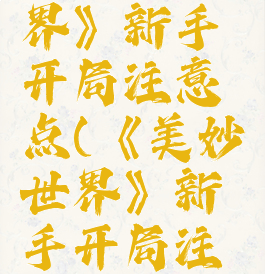 界》新手
开局注意
点(《美妙
世界》新
手开局注